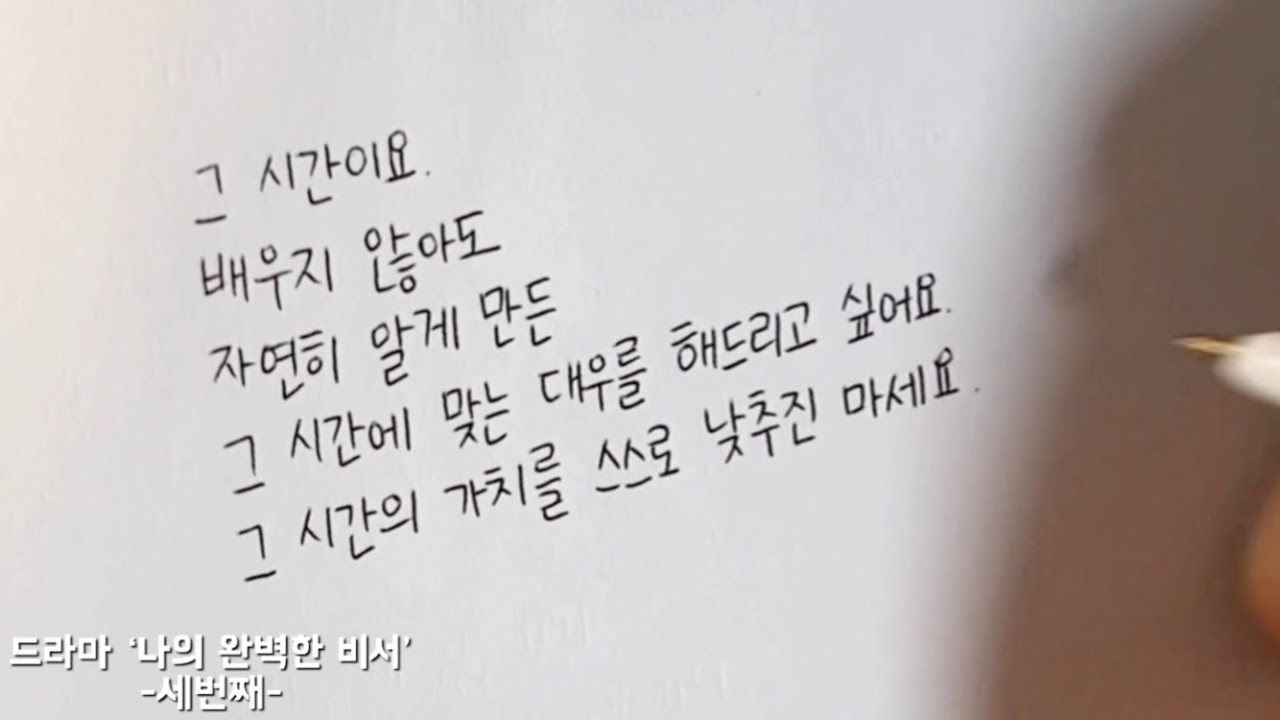 그 시간이요.
배우지 않아도
자연히 알게 만든
그 시간에 맞는 대우를 해드리고 싶어요.
그 시간의 가치를 쓰스로 낮추진 마세요.
드라마 ‘나의 완벽한 비서’
-세번째-